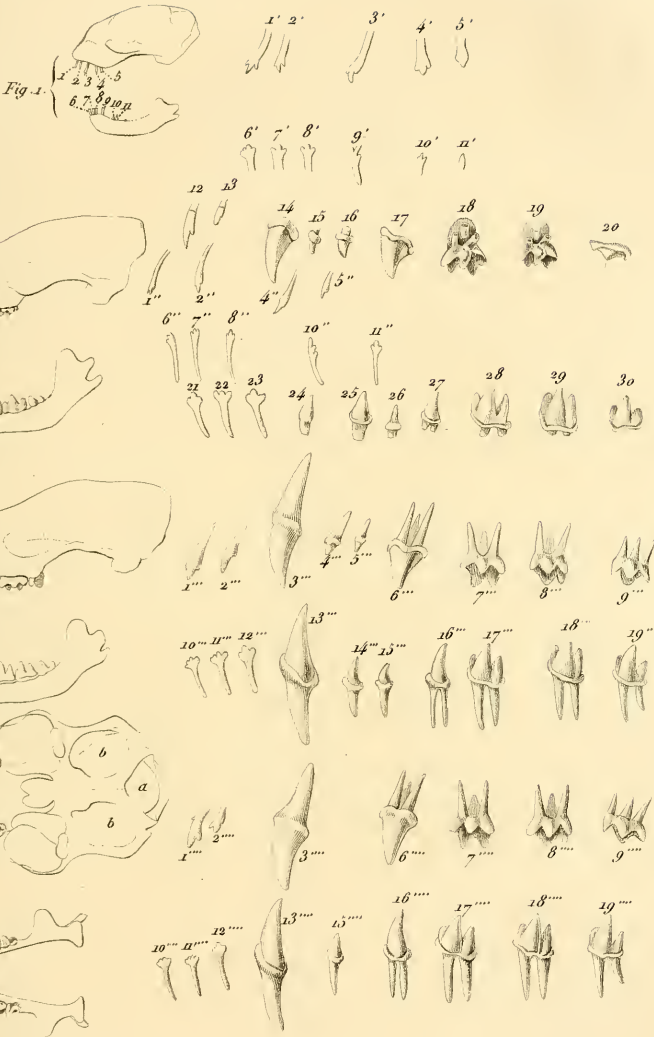 1' 2' 3' 4' 5'
Fig. 1.
1 2 3 4 5
6 7 8 9 10 11
6' 7' 8' 9' 10' 11'
12 13
14 15 16 17 18 19 20
1'' 2'' 4'' 5''
6'' 7'' 8'' 10'' 11''
21 22 23 24 25 26 27 28 29 30
1''' 2''' 3''' 4''' 5''' 6''' 7''' 8''' 9'''
10''' 11''' 12''' 13''' 14''' 15''' 16''' 17''' 18''' 19'''
b
a
b
1'''' 2'''' 3'''' 6'''' 7'''' 8'''' 9''''
10'''' 11'''' 12'''' 13'''' 15'''' 16'''' 17'''' 18'''' 19''''